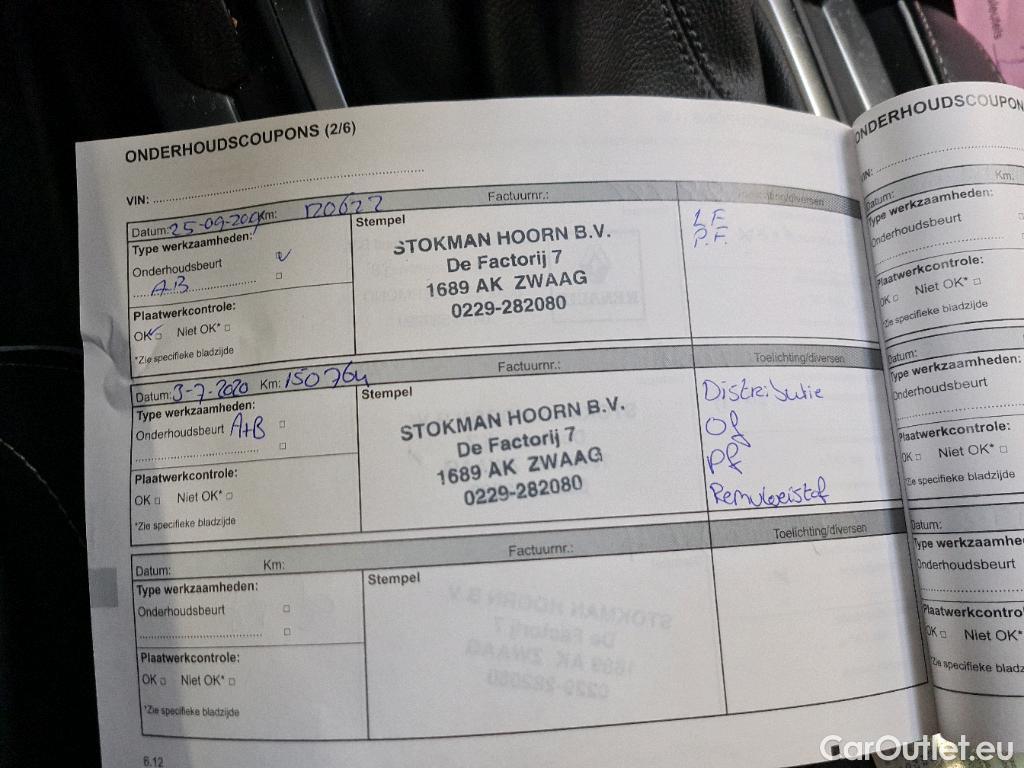 ONDERHOUDSCOUPONS (2/6)
VIN:
Datum: 25-09-20 Km: 120622 Factuurnr.: Toelichting/diversen
Type werkzaamheden:
Onderhoudsbeurt
A B
Plaatwerkcontrole:
OK Niet OK*
*Zie specifieke bladzijde
Stempel
STOKMAN HOORN B.V.
De Factorij 7
1689 AK ZWAAG
0229-282080
P.F.
Datum: 3-7-2020 Km: 150764 Factuurnr.: Toelichting/diversen
Type werkzaamheden:
Onderhoudsbeurt A+B
Plaatwerkcontrole:
OK Niet OK*
*Zie specifieke bladzijde
Stempel
STOKMAN HOORN B.V.
De Factorij 7
1689 AK ZWAAG
0229-282080
Distributie
Of
Pf
Remvloeistof
Datum: Km: Factuurnr.: Toelichting/diversen
Type werkzaamheden:
Onderhoudsbeurt
Plaatwerkcontrole:
OK Niet OK*
*Zie specifieke bladzijde
Stempel
6.12
ONDERHOUDSCOUPON
VIN:
Datum: Km:
Type werkzaamheden:
Onderhoudsbeurt
Plaatwerkcontrole:
OK Niet OK*
*Zie specifieke bladzijde
Datum:
Type werkzaamheden:
Onderhoudsbeurt
Plaatwerkcontrole:
OK Niet OK*
*Zie specifieke bladzijde
Datum:
Type werkzaamhe
Onderhoudsbeurt
Plaatwerkcontro
OK Niet OK*
*Zie specifieke bladz
CarOutlet.eu